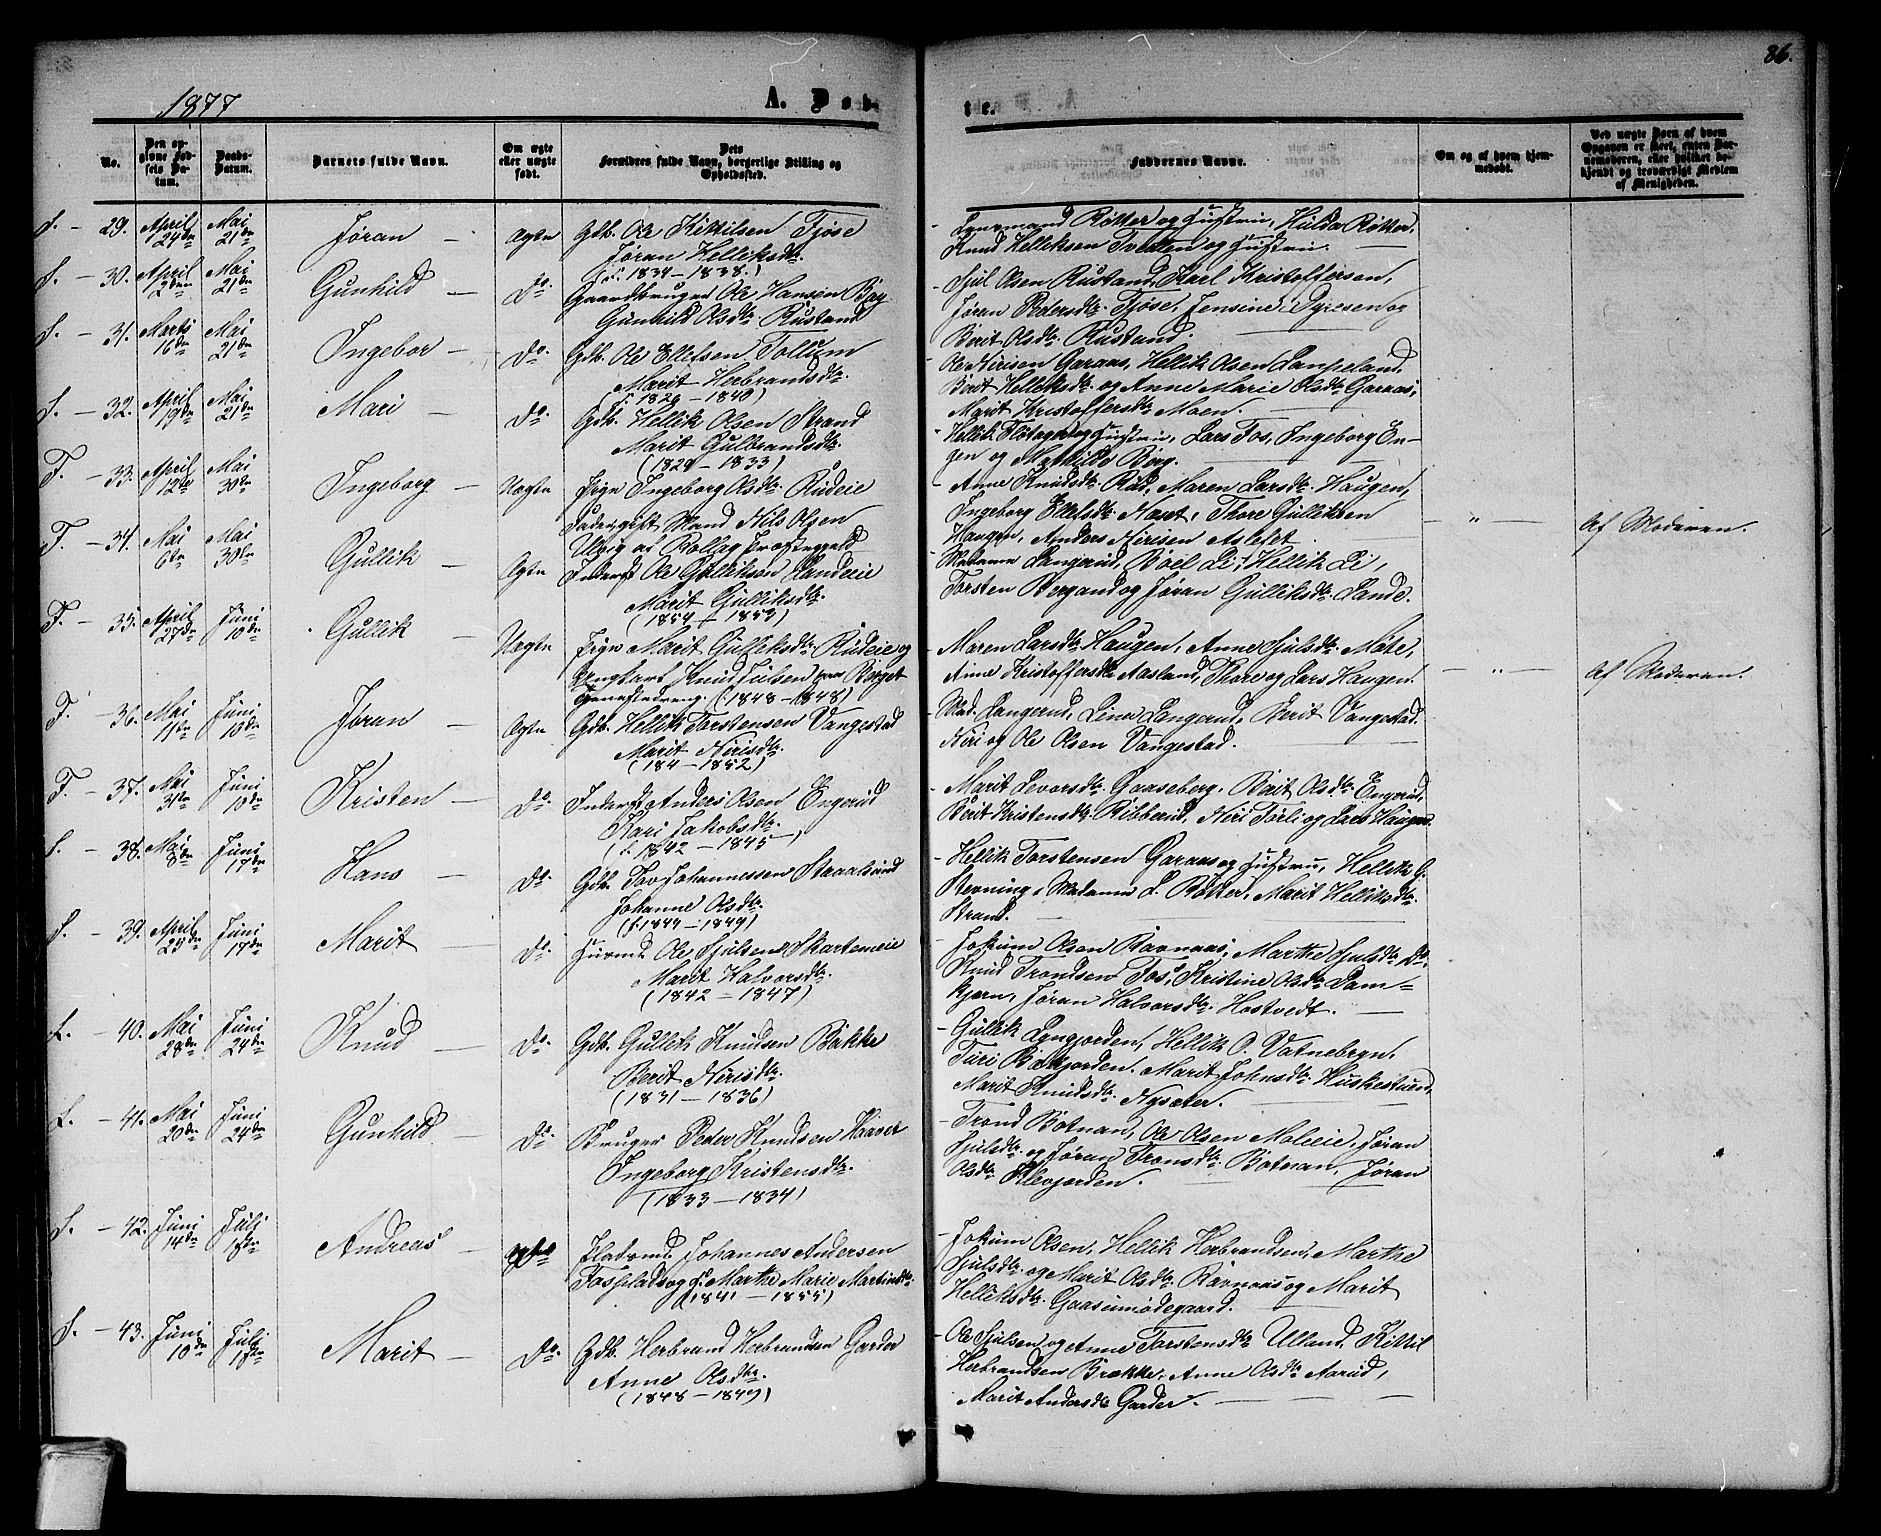 86.
1877
A. Døb-
te.
No.
Den op-
givne Fød-
sels Da-
tum.
Daabs-
Datum.
Barnets fulde Navn.
Om ægte
eller uægte
født.
Dets
Forældres fulde Navn, borgerlige Stilling og
Opholdssted.
Faddernes Navne.
Om og af hvem hjem-
medøbt.
Ved uægte Børn af hvem
Opgaven er skeet, enten Bar-
nemoderen, eller hvilket be-
kjendt og troværdigt Medlem
af Menigheden.
S. - 29. April 24de Mai 21de Jøran - Ægte Gdb. Ole Kittilsen Tjøse
Jøran Helleksdtr.
(f. 1834 - 1838.)
- Lensmand Røtter og Hustru, Hulda Røtter,
Knud Helleksen Tveten og Hustru.
S. - 30. April 2den Mai 21de Gunhild - Do. Gaardbruger Ole Hansen Berg
Gunhild Olsdtr. Rustand
- Sjul Olsen Rustand, Karl Kristoffersen,
Jøran Pedersdtr. Tjøse, Jensine Dyresen og
Berit Olsdtr. Rustand.
S. - 31. Marts 16de Mai 21de Ingebor - Do. Gdb. Ole Ellefsen Tollum
Marit Herbrandsdtr.
(f. 1829 - 1840)
Ole Nirisen Garaas, Hellik Olsen Lampeland,
Berit Helleksdtr. og Anne Marie Olsdtr. Garaas,
Marit Kristoffersdtr. Moen.
S. - 32. April 19de Mai 21de Mari - Do. Gdb. Hellik Olsen Strand
Marit Gulbrandsdtr.
(1829 - 1833)
- Hellik Fløtager og Hustru, Lars Fos, Ingeborg En-
gen og Mathilde Berg.
F. - 33. April 12te Mai 30te Ingeborg - Uægte Pige Ingeborg Olsdtr. Rudeie
Fader, gift Mand Nils Olsen
Ulvig af Rollag Præstegjeld
- Anne Knudsdtr. Rud, Maren Larsdtr. Haugen,
Ingeborg Ellefsdtr. Næset, Thore Gulliksen
Haugen, Anders Nirisen Aslefet
- " - Af Moderen.
F. - 34. Mai 6te Mai 30te Gullik - Ægte Inderst Ole Gulliksen Landeie
Marit Gulliksdtr.
(1854 - 1853)
- Madame Langerud, Boel Li, Hellik Li,
Torsten Bergan og Jøran Gulliksdtr. Lande.
F. - 35. April 27de Juni 10de Gullik - Uægte Pige Marit Gulleksdtr. Rudeie og
Ungkarl Knud Julsen paa Berget
Tjenestedreng. (1848 - 1848)
- Maren Larsdtr. Haugen, Anne Sjulsdtr. Møte,
Anne Kristoffersdtr. Aasland, Thore og Lars Haugen.
- " - Af Moderen.
F. - 36. Mai 11te Juni 10de Jøran - Ægte Gdb. Hellik Torstensen Vangestad
Marit Nirisdtr.
(184 - 1852)
- Mad. Langerud, Line Langerud, Berit Vangestad.
Niri og Ole Olsen Vangestad.
F. - 37. Mai 31te Juni 10de Kristen - Do. Inderst Anders Olsen Engerud
Kari Jakobsdtr.
(f. 1842 - 1845)
- Marit Levorsdtr. Gaaseberg, Berit Olsdtr. Engerud,
Berit Kristensdtr. Ribberud, Niri Torli og Lars Haugen.
S. - 38. Mai 8de Juni 17de Hans - Do. Gdb. Tov Johannessen Staalsrud
Johanne Olsdtr.
(f. 1844 - 1849)
- Hellik Torstensen Garaas og Hustru, Hellik G.
Stevning, Madame L. Røtter, Marit Helliksdtr.
Strand.
S. - 39. April 25de Juni 17de Marit - Do. Husmd. Ole Sjulsens Skartemeie
Marit Halvorsdtr.
(1842 - 1847)
- Jokum Olsen Ravnaas, Marthe Sjulsdtr. Do.
Knud Trondsen Fos, Kristine Olsdtr. Dam-
kjern, Jøran Halvorsdtr. Hostvedt.
L. - 40. Mai 28de Juni 24de Knud - Do. Gdb. Gullik Knudsen Bakke
Berit Nirisdtr.
(1831 - 1836)
- Gullik Lyngjorden, Hellik O. Vatnebryn.
Turi Bakjorden, Marit Johnsdtr. Huskestund,
Marit Knudsdtr. Nysæter.
L. - 41. Mai 20de Juni 24de Gunhild - Do. Bruger Peder Knudsen Haaver
Ingeborg Kristensdtr.
(1833 - 1834)
- Trond Botnan, Ole Olsen Moleeie, Jøran
Sjulsdtr. og Jøran Tronsdtr. Botnan, Jøran
Olsdtr. Klevjorden.
S. - 42. Juni 14de Juli 15de Andreas - Ægte Flatemd. Johannes Andersen
Fosplads og H. Marthe Marie Martinsdtr.
(1841 - 1855)
- Jokum Olsen, Hellik Herbrandsen, Marthe
Sjulsdtr. og Marit Olsdtr. Ravnaas og Marit
Helliksdtr. Gaasumødegaard.
S. - 43. Juni 10de Juli 15de Marit - Do. Gdb. Herbrand Herbrandsen Garder
Anne Olsdtr.
(1848 - 1849)
- Ole Sjulsen og Anne Torstensdtr. Ulland, Kittil
Herbrandsen Brække, Anne Olsdtr. Aarud,
Marit Andersdtr. Garder.